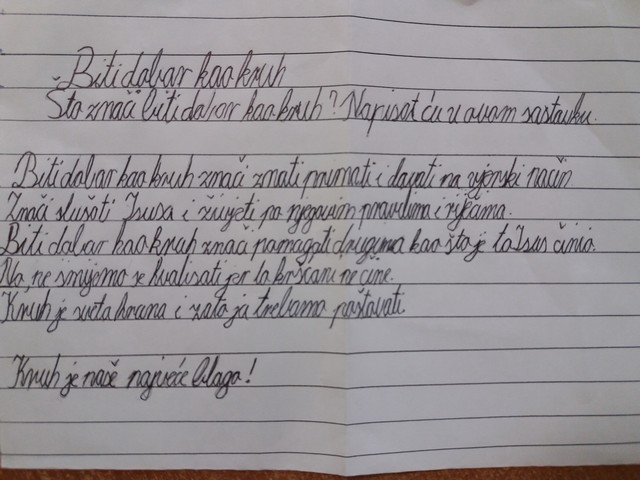 Biti dobar kao kruh
Što znači biti dobar kao kruh? Napisat ću u ovom sastavku.
Biti dobar kao kruh znači znati primati i davati na vjerski način
Znači slušati Isusa i živjeti po njegovim pravilima i riječima.
Biti dobar kao kruh znači pomagati drugima kao što je to Isus činio.
No, ne smijemo se hvalisati jer to kršćani ne čine.
Kruh je sveta hrana i zato ju trebamo poštovati.
Kruh je naše najveće blago!